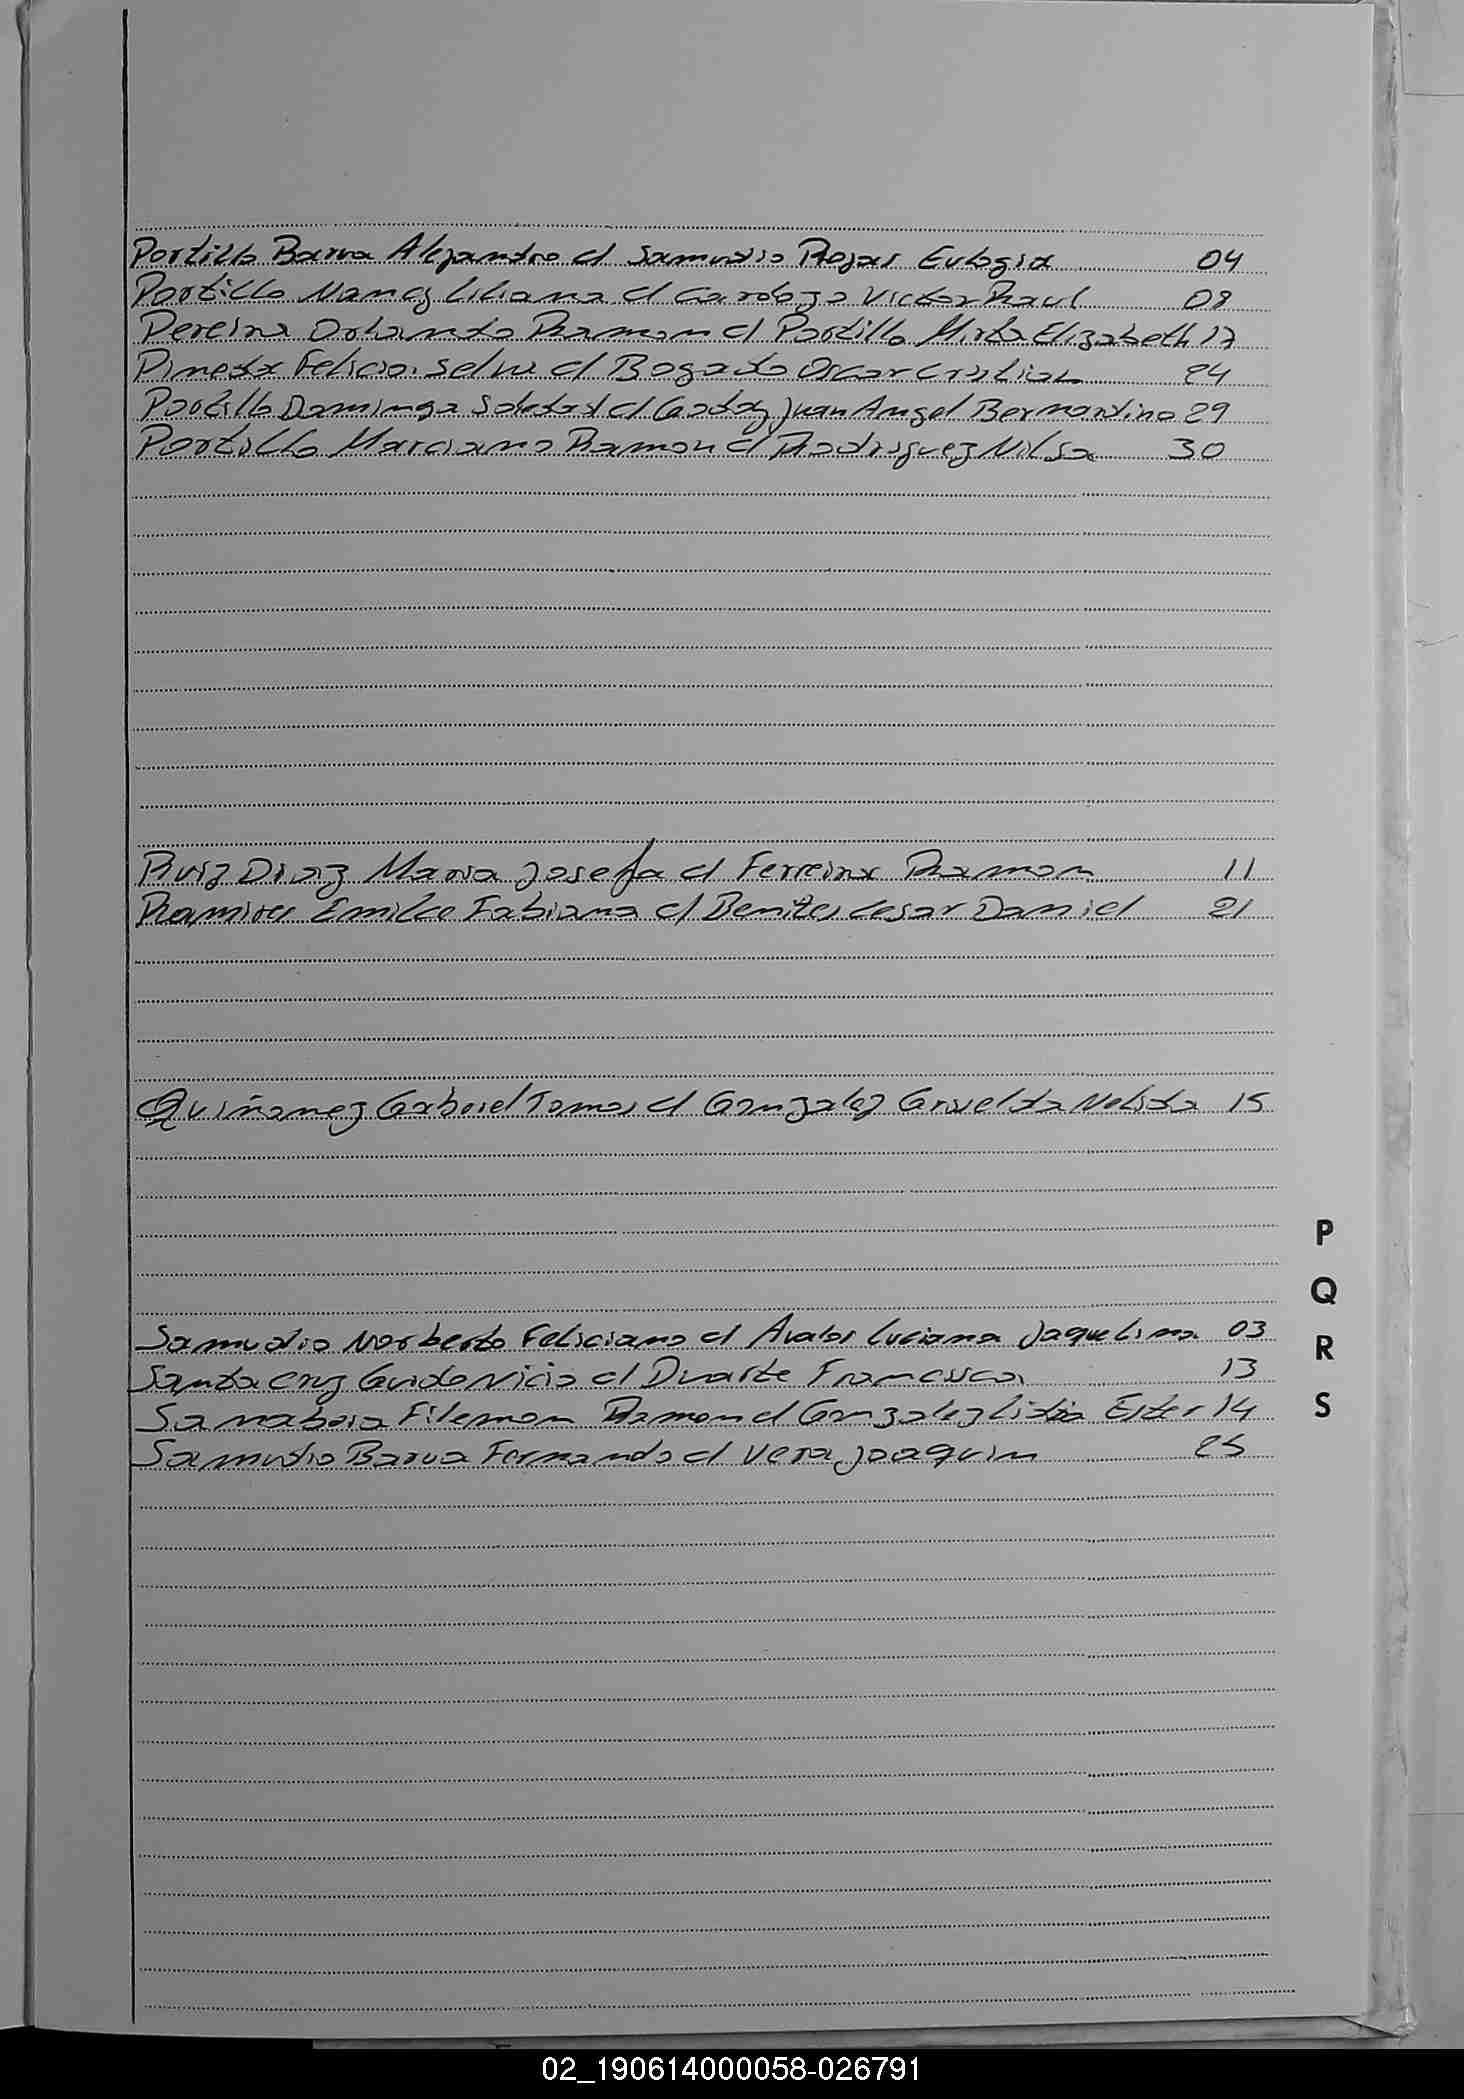 Portillo Barua Alejandro c/ Samudio Rojas Eulogia 04
Portillo Nancy Liliana c/ Cardozo Victor Raul 08
Pereira Orlando Ramon c/ Portillo Mirta Elizabeth 17
Pineda Felicia Selva c/ Bogado Oscar Cristian 24
Portillo Dominga Soledad c/ Godoy Juan Angel Bernardino 29
Portillo Marciano Ramon c/ Rodriguez Nilsa 30
Ruiz Diaz Maria Josefa c/ Ferreira Ramon 11
Ramires Emilce Fabiana c/ Benites Cesar Daniel 21
Quiñonez Gabriel Tomas c/ Gonzalez Griselda Nelida 15
P
Q
Samudio Norberto Feliciano c/ Avalos Luciana Jaquelina 03
R
Santa Cruz c/ Duarte Francisca 13
Sanabria Filemon Ramon c/ Gonzalez Lidia Ester 14
S
Samudio Barua Fernando c/ Vera Joaquin 25
02_190614000058-026791